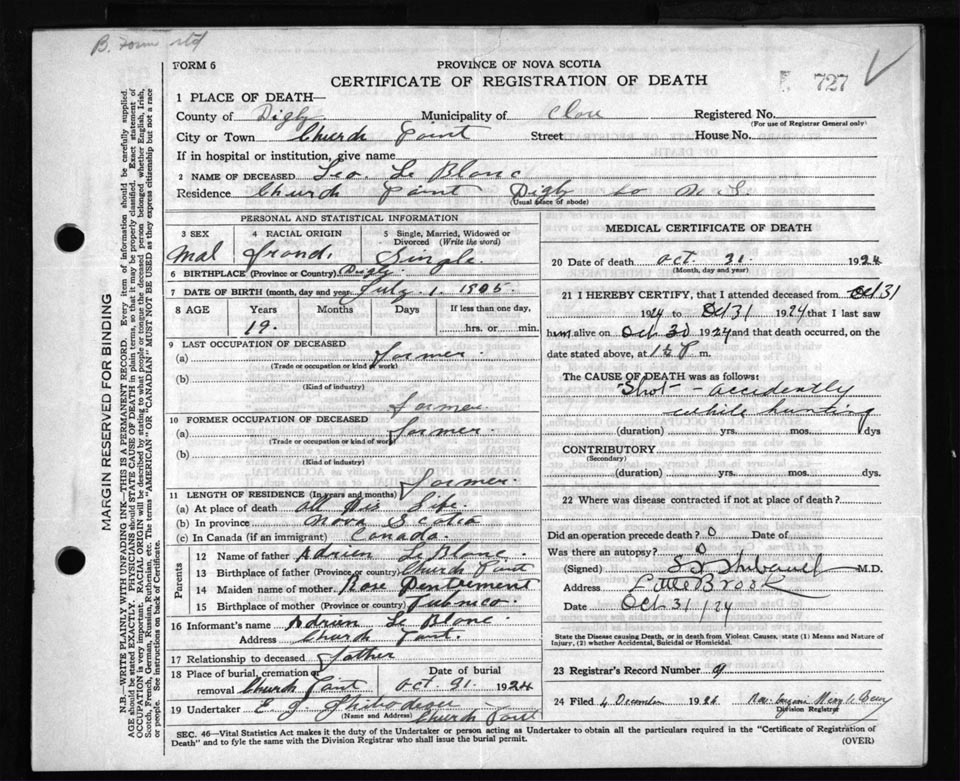 B. Form
FORM 6
PROVINCE OF NOVA SCOTIA
CERTIFICATE OF REGISTRATION OF DEATH
727
1 PLACE OF DEATH—
County of Digby Municipality of Clare Registered No.
(For use of Registrar General only)
City or Town Church Point Street House No.
If in hospital or institution, give name
2 NAME OF DECEASED Leo. Le Blanc
Residence Church Point Digby Co N.S.
(Usual place of abode)
PERSONAL AND STATISTICAL INFORMATION
3 SEX 4 RACIAL ORIGIN 5 Single, Married, Widowed or Divorced (Write the word)
Mal Single.
6 BIRTHPLACE (Province or Country) Digby.
7 DATE OF BIRTH (month, day and year) July. 1. 1905.
8 AGE Years Months Days If less than one day,
19. hrs. or min.
9 LAST OCCUPATION OF DECEASED
(a) Farmer.
(Trade or occupation or kind of work)
(b)
(Kind of industry)
Farmer
10 FORMER OCCUPATION OF DECEASED
(a) Farmer.
(Trade or occupation or kind of work)
(b)
(Kind of industry)
Farmer.
11 LENGTH OF RESIDENCE (In years and months)
(a) At place of death all His Life.
(b) In province Nova Scotia
(c) In Canada (if an immigrant) Canada.
Parents
12 Name of father Adrien Le Blanc.
13 Birthplace of father (Province or country) Church Point
14 Maiden name of mother Rose Dentremont
15 Birthplace of mother (Province or country) Pubnico.
16 Informant's name Adrien Le Blanc.
Address Church Point.
17 Relationship to deceased father
18 Place of burial, cremation or removal Church Point Date of burial Oct 31. 1924
19 Undertaker E
(Name and Address) Church Point
MEDICAL CERTIFICATE OF DEATH
20 Date of death Oct. 31. 1924
(Month, day and year)
21 I HEREBY CERTIFY, that I attended deceased from Oct 31
1924 to Oct 31 1924 that I last saw
him alive on Oct 30 1924 and that death occurred, on the
date stated above, at P. m.
The CAUSE OF DEATH was as follows:
Shot - accidently
while hunting
(duration) yrs. mos. dys
CONTRIBUTORY
(Secondary)
(duration) yrs. mos. dys.
22 Where was disease contracted if not at place of death?
Did an operation precede death? 0 Date of
Was there an autopsy? 0
(Signed) Thibault M.D.
Address Little Brook
Date Oct 31/24
State the Disease causing Death, or in death from Violent Causes, state (1) Means and Nature of
Injury, (2) whether Accidental, Suicidal or Homicidal.
23 Registrar's Record Number 9
24 Filed 4 December 192
Division Registrar
SEC. 46—Vital Statistics Act makes it duty of the Undertaker or person acting as Undertaker to obtain all the particulars required in the "Certificate of Registration of
Death" and to fyle the same with the Division Registrar who shall issue the burial permit.
(OVER)
MARGIN RESERVED FOR BINDING
N.B.—WRITE PLAINLY WITH UNFADING INK—THIS IS A PERMANENT RECORD. Every item of information should be carefully supplied.
AGE should be stated EXACTLY. PHYSICIANS should STATE CAUSE OF DEATH in plain terms, so that it may be properly classified. Exact statement of
OCCUPATION is very important. RACIAL ORIGIN will be described by stating to what people or tongue the deceased person belonged whether English, Irish,
Scotch, French, German, Russian, Ruthenian, etc. The terms "AMERICAN" OR "CANADIAN" MUST NOT BE USED as they express citizenship but not a race
or people. See instructions on back of Certificate.